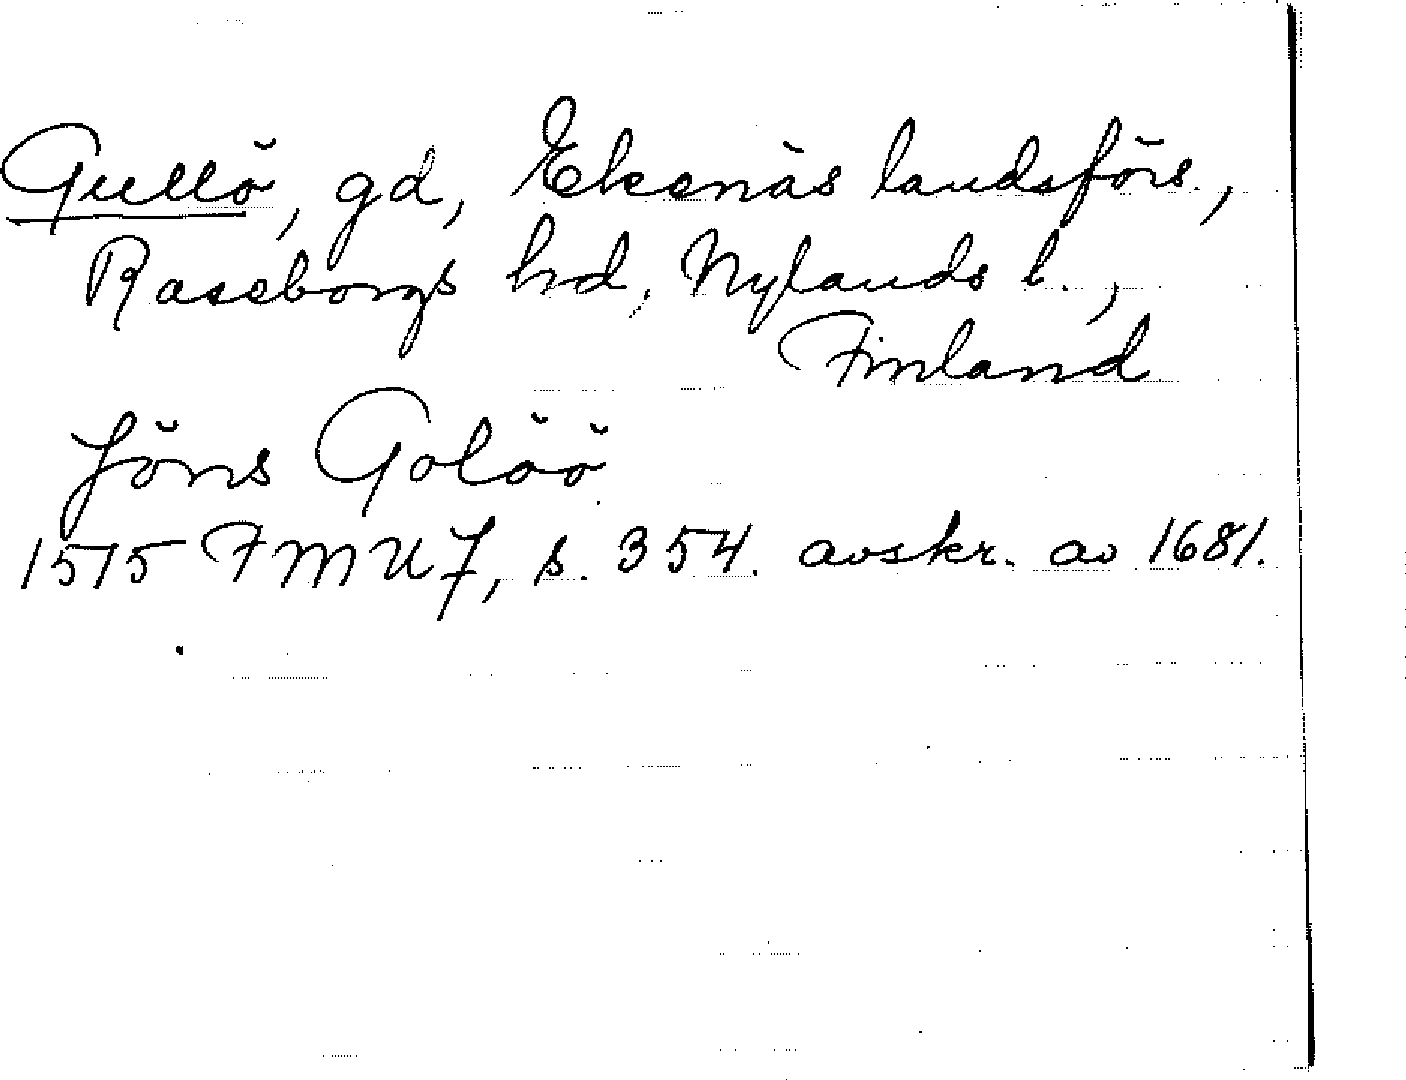 Gullö, gd, Ekenäs landsförs.,
Raseborgs hd, Nylands l.,
Finland
Jöns Golöö
1575 FMU 7, s. 354. avskr. av 1681.